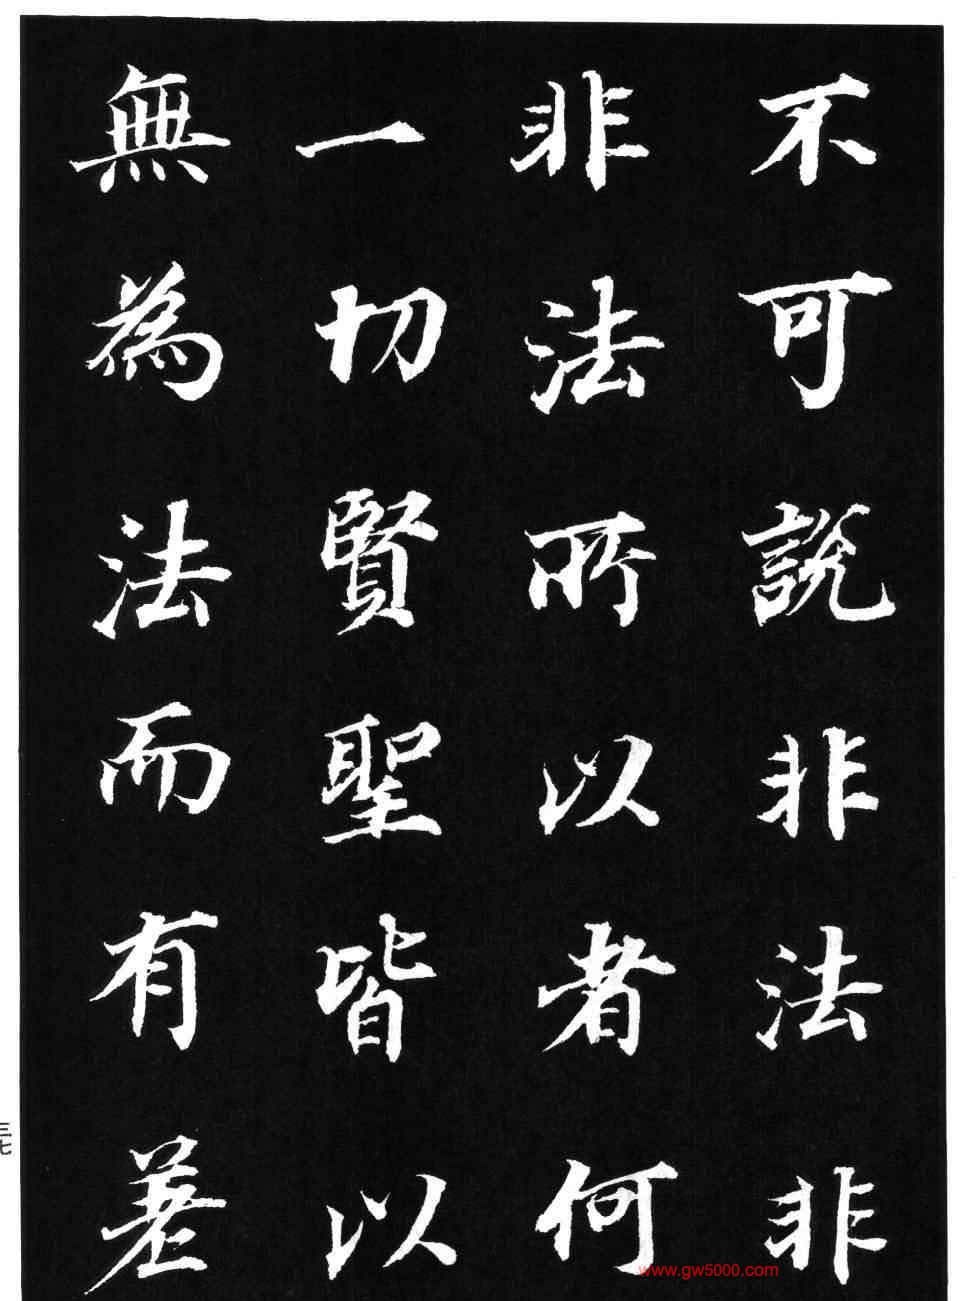 不可說非法非
非法所以者何
一切賢聖皆以
無為法而有差
三七
www.gw5000.com